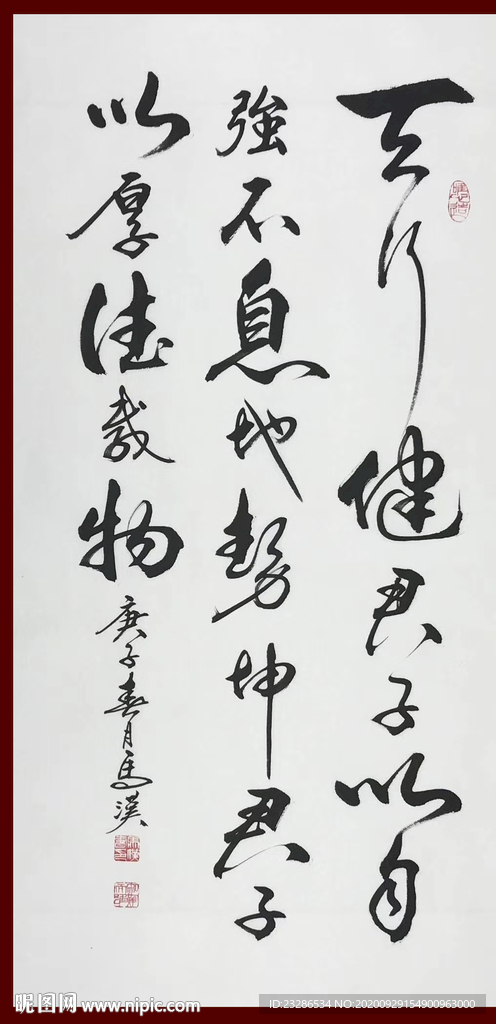 天行健君子以自
強不息地势坤君子
以厚德载物
庚子春月马汉
昵图网 www.nipic.com
ID:23286534 NO:20200929154900963000